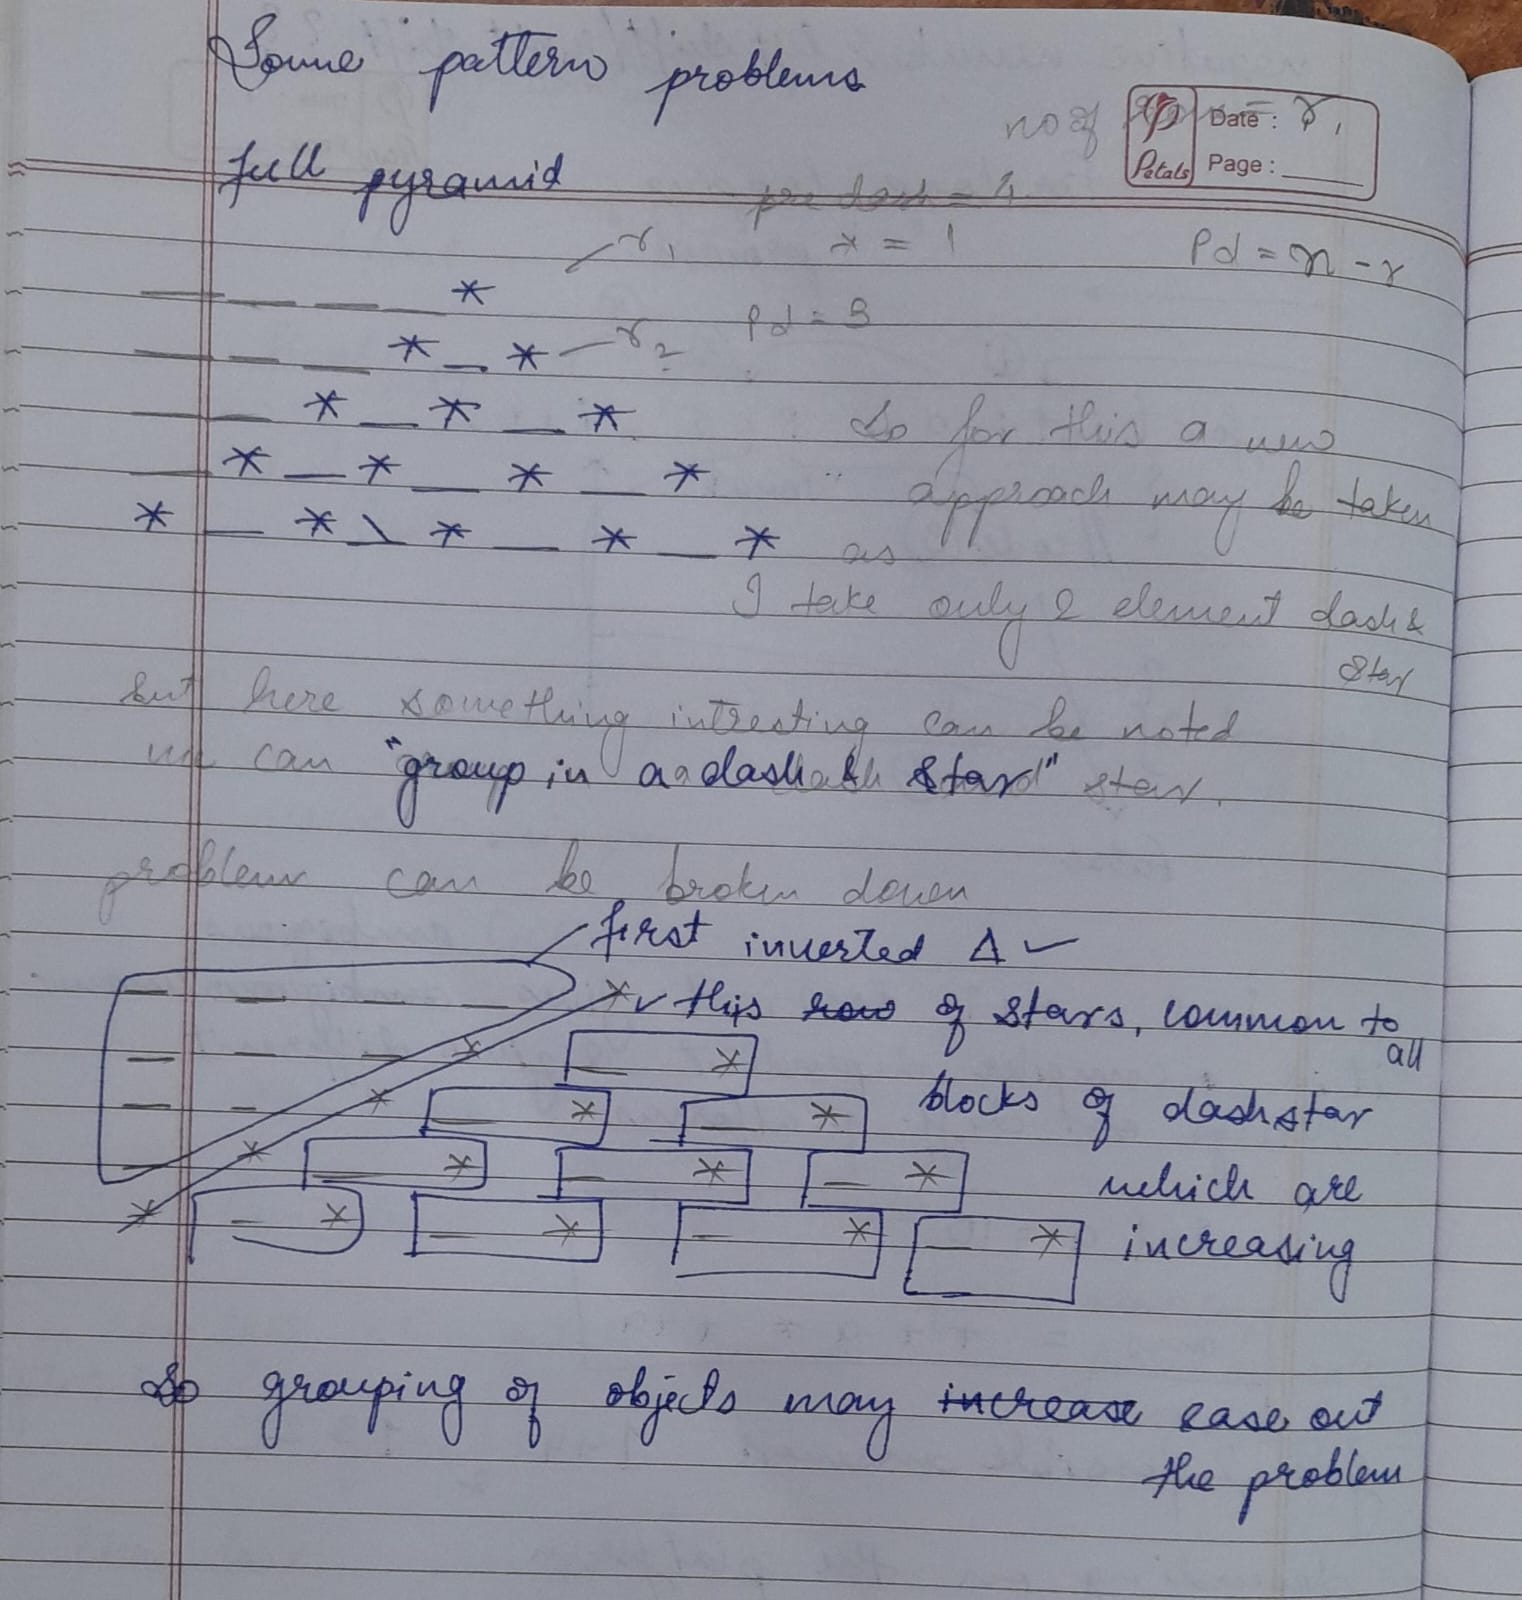 Some pattern problems
no of
Petals
Date :
Page :
full pyramid
pre dash = 4
r1
* = 1
Pd = n - r
_ _ _ _ *
Pd = 3
_ _ _ * _ * r2
_ _ * _ * _ *
So for this a new
_ * _ * _ * _ *
approach may be taken
* _ * _ * _ * _ *
as
I take only 2 element dash &
star
but here something intresting can be noted
we can "group in a dash & star" star.
problem can be broken down
first inverted Δ ✓
_ _ _ _ * ✓ this row of stars, common to
all
_ _ _ * _ *
_ _ * _ * _ * blocks of dashstar
_ * _ * _ * _ * which are
* _ * _ * _ * _ * increasing
So grouping of objects may increase ease out
the problem